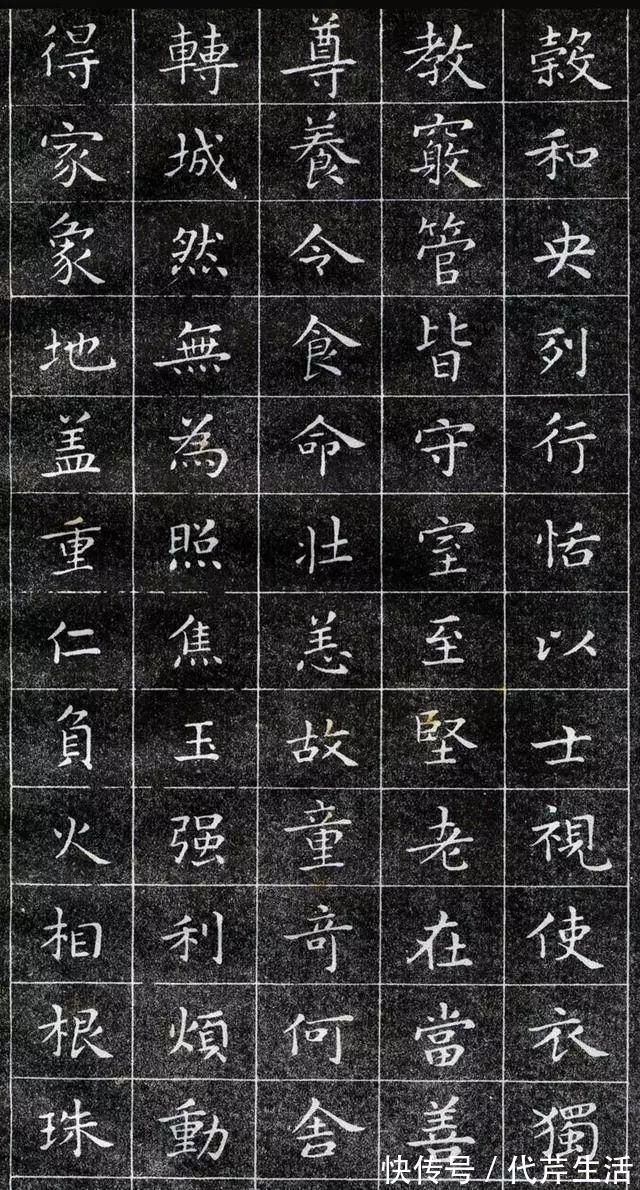 榖和央列行恬以士視使衣獨
教竅管皆守室至堅老在當善
尊養令食命壯恙故童竒何舍
轉城然無為照焦玉强利煩動
得家象地盖重仁負火相根珠
快传号/代芹生活